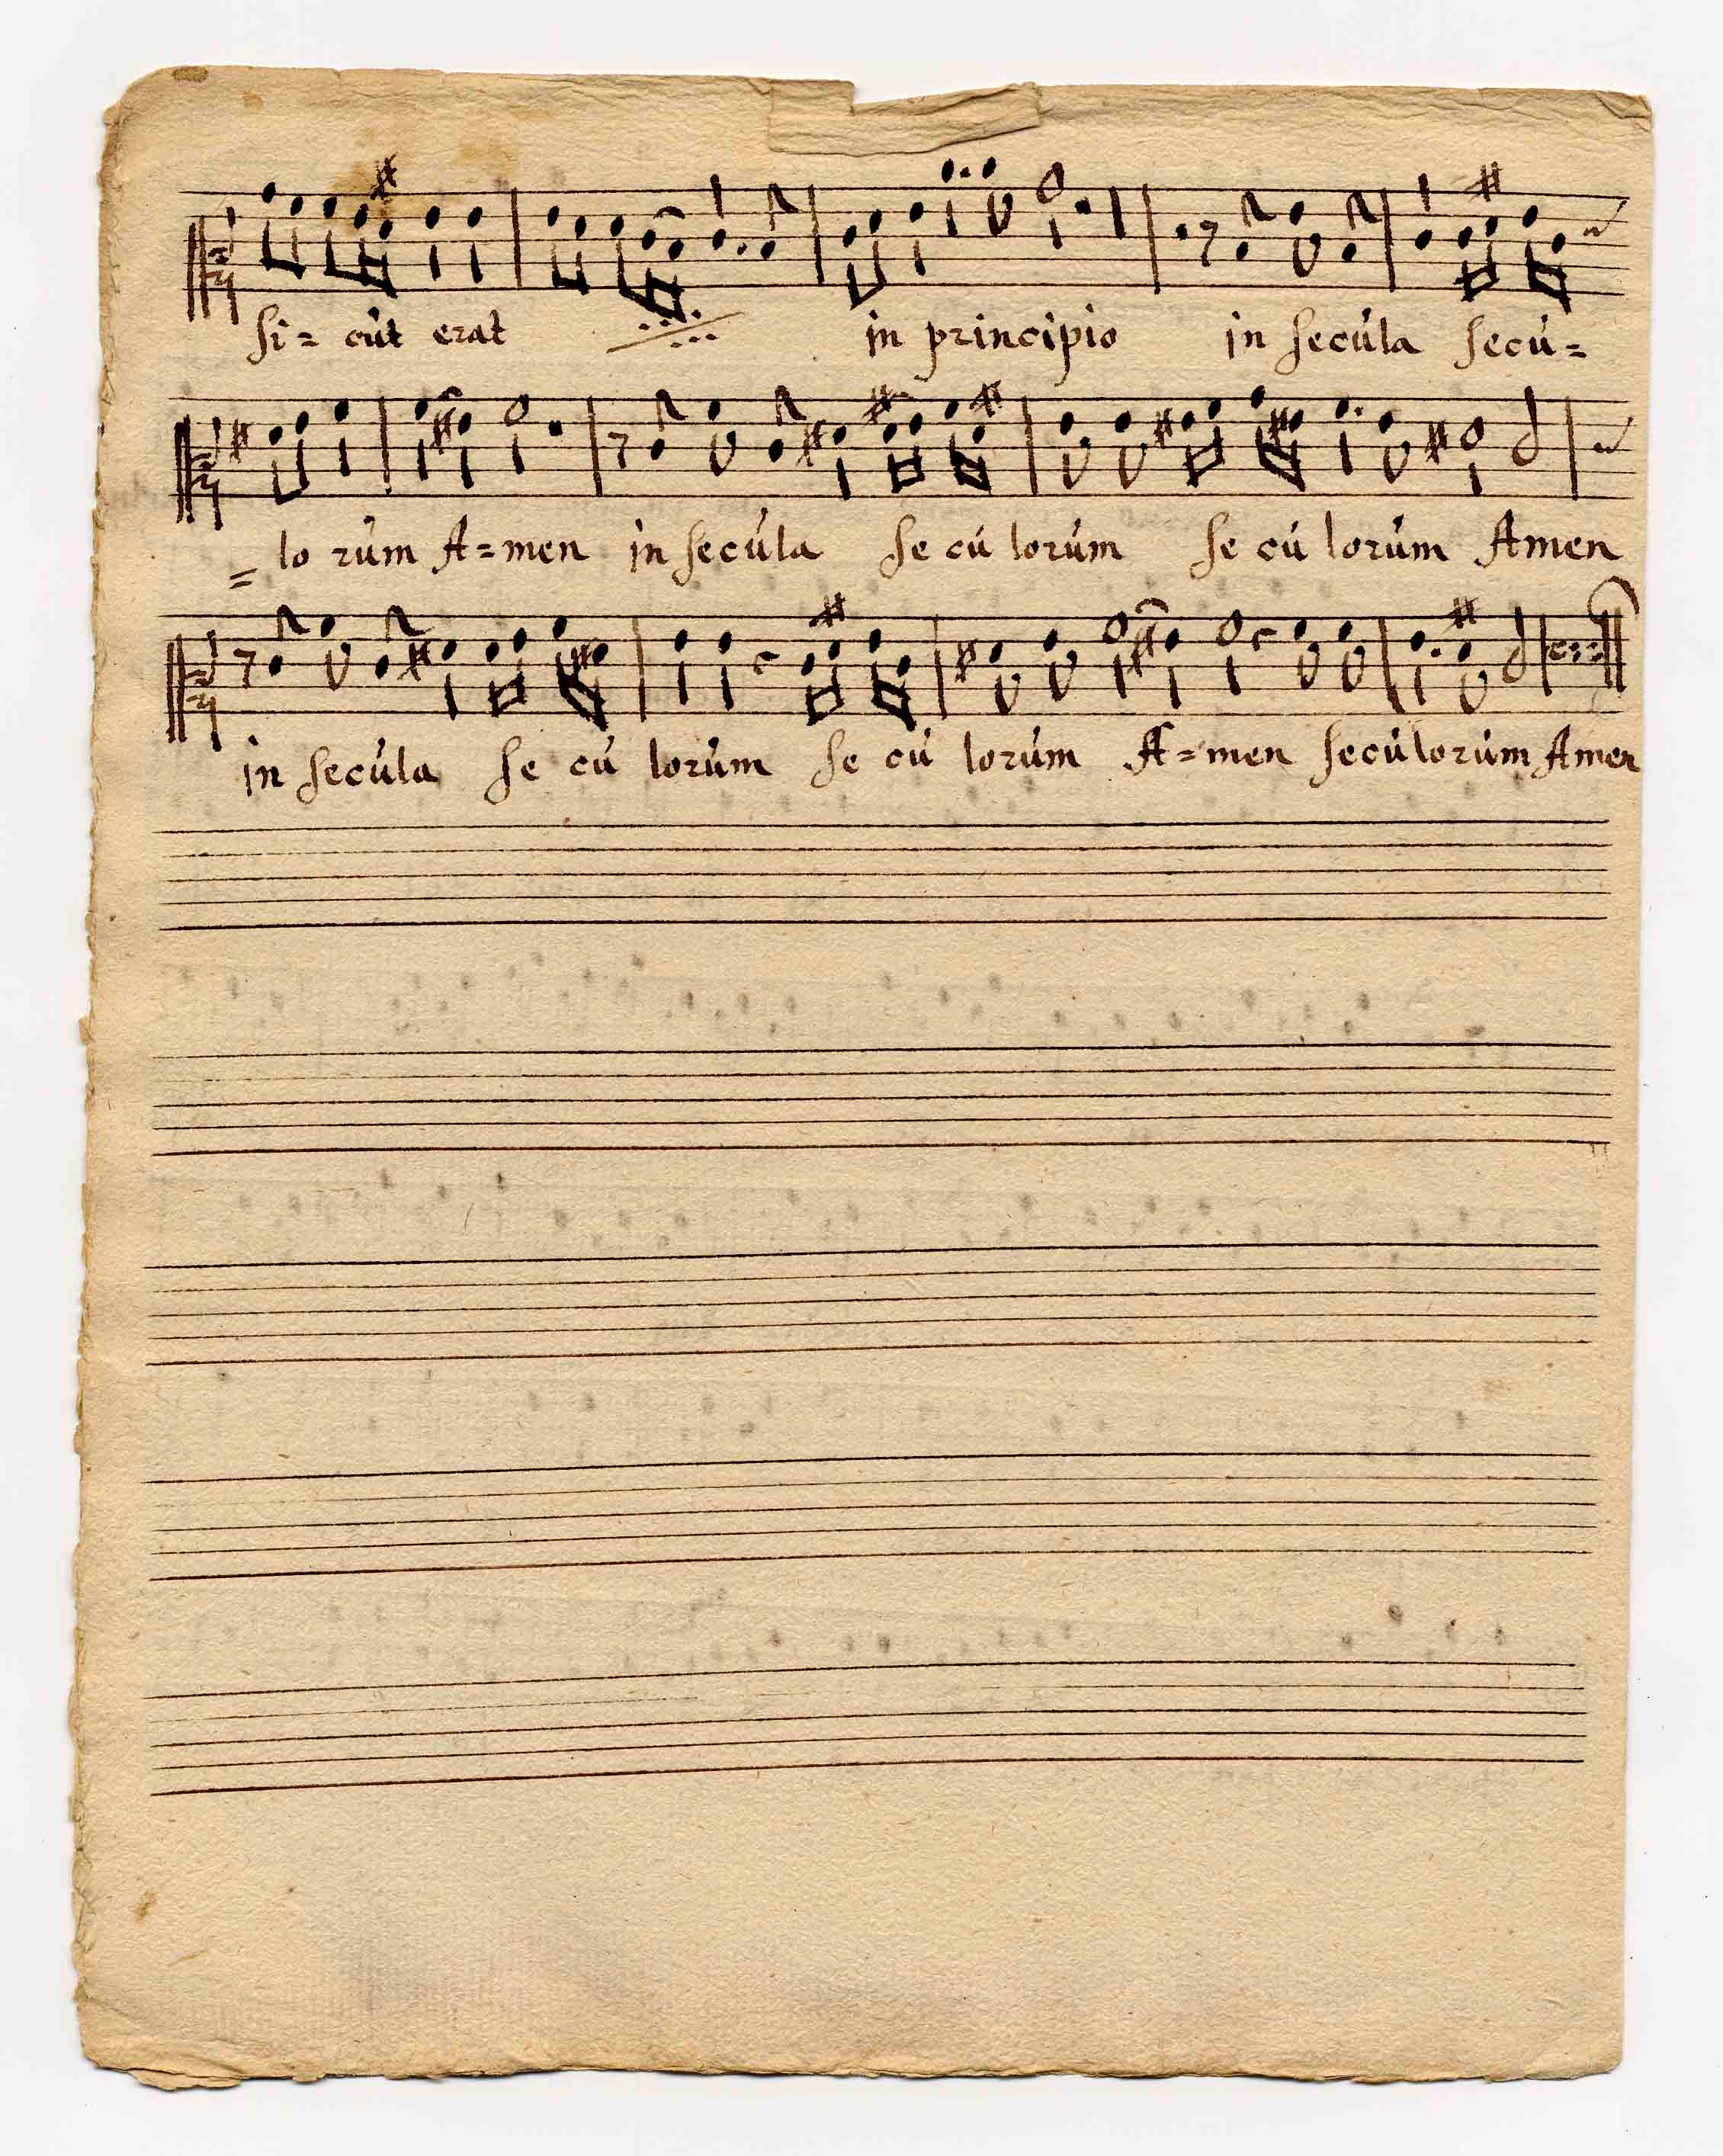 Si= cût erat in principio in secúla secú=
= lo rúm A=men in secúla se cú lorúm se cú lorúm Amen
in secúla se cú lorúm se cú lorúm A=men secúlorúm Amen